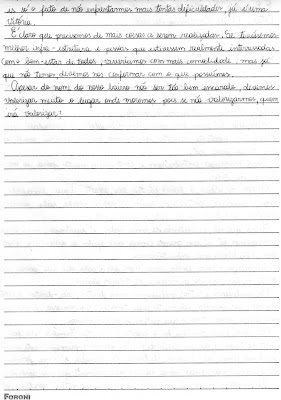 is só o fato de não enfrentarmos mais tantas dificuldades, já é uma
vitória.
É claro que precisamos de mais coisas a serem realizadas. Se tivéssemos
melhor infra-estrutura e pessoas que estivessem realmente interessadas
com o bem-estar de todos, viveríamos com mais comodidade, mas já
que não temos, devemos nos conformar com o que possuímos.
Apesar do nome do nosso bairro não ser tão bem encarado, devemos
valorizar muito o lugar onde moramos pois se não valorizarmos, quem
irá valorizar?
FORONI